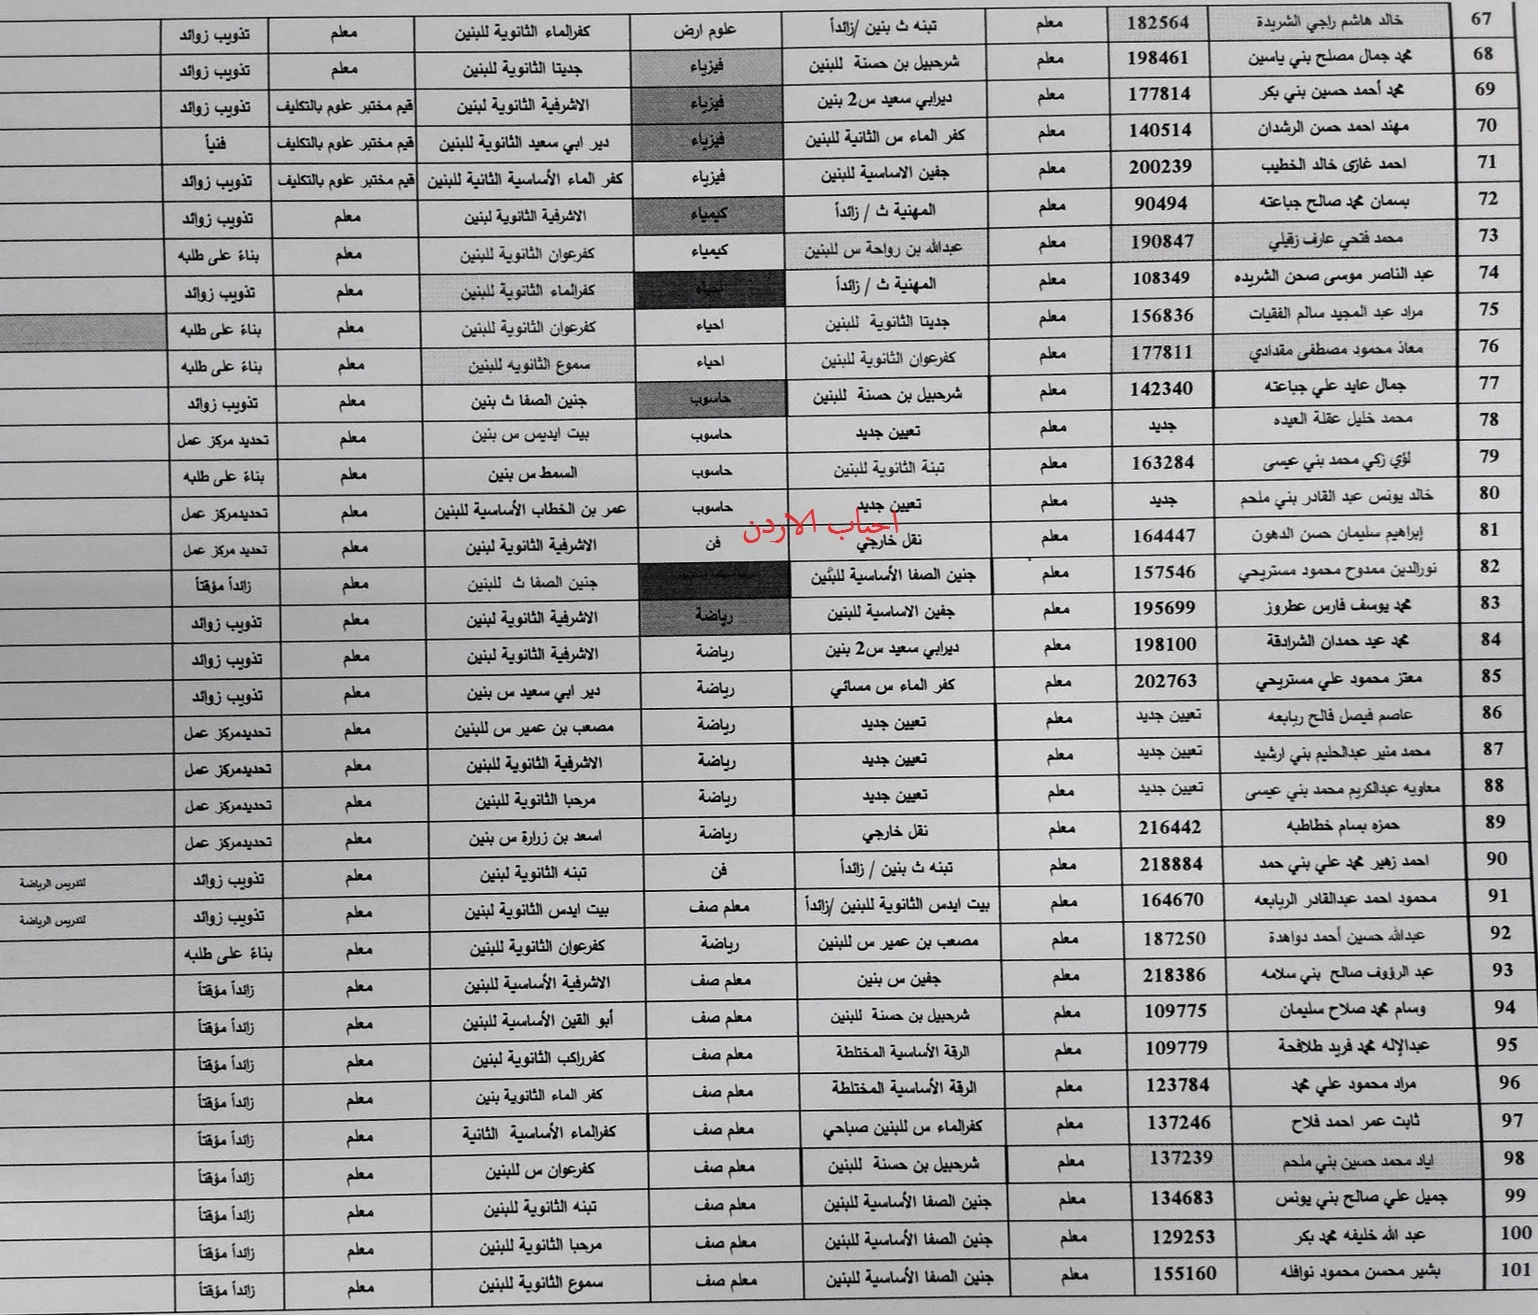 67 خالد هاشم راجي الشريدة 182564 معلم تبنه ث بنين /زائداً علوم ارض كفرالماء الثانوية للبنين معلم تذويب زوائد
68 محمد جمال مصلح بني ياسين 198461 معلم شرحبيل بن حسنة للبنين فيزياء جديتا الثانوية للبنين معلم تذويب زوائد
69 محمد أحمد حسين بني بكر 177814 معلم ديرابي سعيد س2 بنين فيزياء الاشرفية الثانوية لبنين قيم مختبر علوم بالتكليف تذويب زوائد
70 مهند احمد حسن الرشدان 140514 معلم كفر الماء س الثانية للبنين فيزياء دير ابي سعيد الثانوية للبنين قيم مختبر علوم بالتكليف فنياً
71 احمد غازى خالد الخطيب 200239 معلم جفين الاساسية للبنين فيزياء كفر الماء الأساسية الثانية للبنين قيم مختبر علوم بالتكليف تذويب زوائد
72 بسمان محمد صالح جباعته 90494 معلم المهنية ث / زائداً كيمياء الاشرفية الثانوية لبنين معلم تذويب زوائد
73 محمد فتحي عارف زقيلي 190847 معلم عبدالله بن رواحة س للبنين كيمياء كفرعوان الثانوية للبنين معلم بناءً على طلبه
74 عبد الناصر موسى صحن الشريده 108349 معلم المهنية ث / زائداً احياء كفرالماء الثانوية للبنين معلم تذويب زوائد
75 مراد عبد المجيد سالم الفقيات 156836 معلم جديتا الثانوية للبنين احياء كفرعوان الثانوية للبنين معلم بناءً على طلبه
76 معاذ محمود مصطفى مقدادي 177811 معلم كفرعوان الثانوية للبنين احياء سموع الثانويه للبنين معلم بناءً على طلبه
77 جمال عايد علي جباعته 142340 معلم شرحبيل بن حسنة للبنين حاسوب جنين الصفا ث بنين معلم تذويب زوائد
78 محمد خليل عقلة العيده جديد معلم تعيين جديد حاسوب بيت ايديس س بنين معلم تحديد مركز عمل
79 لؤي زكي محمد بني عيسى 163284 معلم تبنة الثانوية للبنين حاسوب السمط س بنين معلم بناءً على طلبه
80 خالد يونس عبد القادر بني ملحم جديد معلم تعيين جديد حاسوب عمر بن الخطاب الأساسية للبنين معلم تحديدمركز عمل
احباب الاردن
81 إبراهيم سليمان حسن الدهون 164447 معلم نقل خارجي فن الاشرفية الثانوية لبنين معلم تحديد مركز عمل
82 نورالدين ممدوح محمود مستريحي 157546 معلم جنين الصفا الأساسية للبنين جنين الصفا ث للبنين معلم زائداً مؤقتاً
83 محمد يوسف فارس عطروز 195699 معلم جفين الاساسية للبنين رياضة الاشرفية الثانوية لبنين معلم تذويب زوائد
84 محمد عيد حمدان الشرادقة 198100 معلم ديرابي سعيد س2 بنين رياضة الاشرفية الثانوية لبنين معلم تذويب زوائد
85 معتز محمود علي مستريحي 202763 معلم كفر الماء س مسائي رياضة دير ابي سعيد س بنين معلم تذويب زوائد
86 عاصم فيصل فالح ربابعه تعيين جديد معلم تعيين جديد رياضة مصعب بن عمير س للبنين معلم تحديدمركز عمل
87 محمد منير عبدالحليم بني ارشيد تعيين جديد معلم تعيين جديد رياضة الاشرفية الثانوية للبنين معلم تحديدمركز عمل
88 معاويه عبدالكريم محمد بني عيسى تعيين جديد معلم تعيين جديد رياضة مرحبا الثانوية للبنين معلم تحديدمركز عمل
89 حمزه بسام خطاطبه 216442 معلم نقل خارجي رياضة اسعد بن زرارة س بنين معلم تحديدمركز عمل
90 احمد زهير محمد علي بني حمد 218884 معلم تبنه ث بنين / زائداً فن تبنه الثانوية لبنين معلم تذويب زوائد لتدريس الرياضة
91 محمود احمد عبدالقادر الربابعه 164670 معلم بيت ايدس الثانوية للبنين /زائداً معلم صف بيت ايدس الثانوية لبنين معلم تذويب زوائد لتدريس الرياضة
92 عبدالله حسين أحمد دواهدة 187250 معلم مصعب بن عمير س للبنين رياضة كفرعوان الثانوية للبنين معلم بناءً على طلبه
93 عبد الرؤوف صالح بني سلامه 218386 معلم جفين س بنين معلم صف الاشرفية الأساسية للبنين معلم زائداً مؤقتاً
94 وسام محمد صلاح سليمان 109775 معلم شرحبيل بن حسنة للبنين معلم صف أبو القين الأساسية للبنين معلم زائداً مؤقتاً
95 عبدالإله محمد فريد طلافحة 109779 معلم الرقة الأساسية المختلطة معلم صف كفرراكب الثانوية لبنين معلم زائداً مؤقتاً
96 مراد محمود علي محمد 123784 معلم الرقة الأساسية المختلطة معلم صف كفر الماء الثانوية بنين معلم زائداً مؤقتاً
97 ثابت عمر احمد فلاح 137246 معلم كفرالماء س للبنين صباحي معلم صف كفرالماء الأساسية الثانية معلم زائداً مؤقتاً
98 اياد محمد حسين بني ملحم 137239 معلم شرحبيل بن حسنة للبنين معلم صف كفرعوان س للبنين معلم زائداً مؤقتاً
99 جميل علي صالح بني يونس 134683 معلم جنين الصفا الأساسية للبنين معلم صف تبنه الثانوية للبنين معلم زائداً مؤقتاً
100 عبد الله خليفه محمد بكر 129253 معلم جنين الصفا الأساسية للبنين معلم صف مرحبا الثانوية للبنين معلم زائداً مؤقتاً
101 بشير محسن محمود نوافله 155160 معلم جنين الصفا الأساسية للبنين معلم صف سموع الثانوية للبنين معلم زائداً مؤقتاً